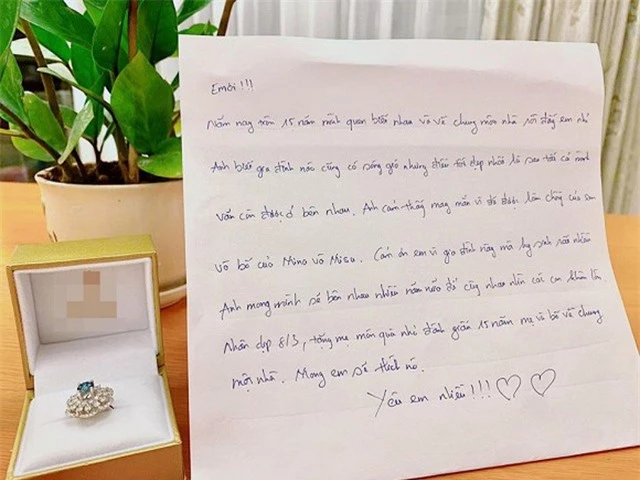 Em ơi !!!
Năm nay tròn 15 năm mình quen biết nhau và về chung một nhà rồi đấy em nhỉ
Anh biết gia đình nào cũng có sóng gió nhưng điều tốt đẹp nhất là sau tất cả mình
vẫn còn được ở bên nhau. Anh cảm thấy may mắn vì đã được làm chồng của em
và bố của Mino và Misu. Cám ơn em vì gia đình này mà hy sinh rất nhiều
Anh mong mình sẽ bên nhau nhiều năm nữa để cùng nhau nhìn các con khôn lớn.
Nhân dịp 8/3, tặng mẹ món quà nhỏ đánh giấu 15 năm mẹ và bố về chung
một nhà. Mong em sẽ thích nó.
Yêu em nhiều !!! ♡ ♡